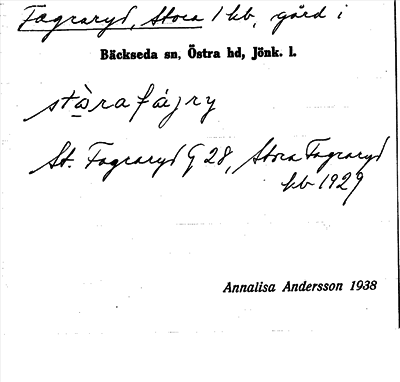 Fagraryd, Stora 1 kb, gård i
Bäckseda sn, Östra hd, Jönk. l.
stàra fájry
St. Fagraryd G 28, Stora Fagraryd
kb 1929
Annalisa Andersson 1938